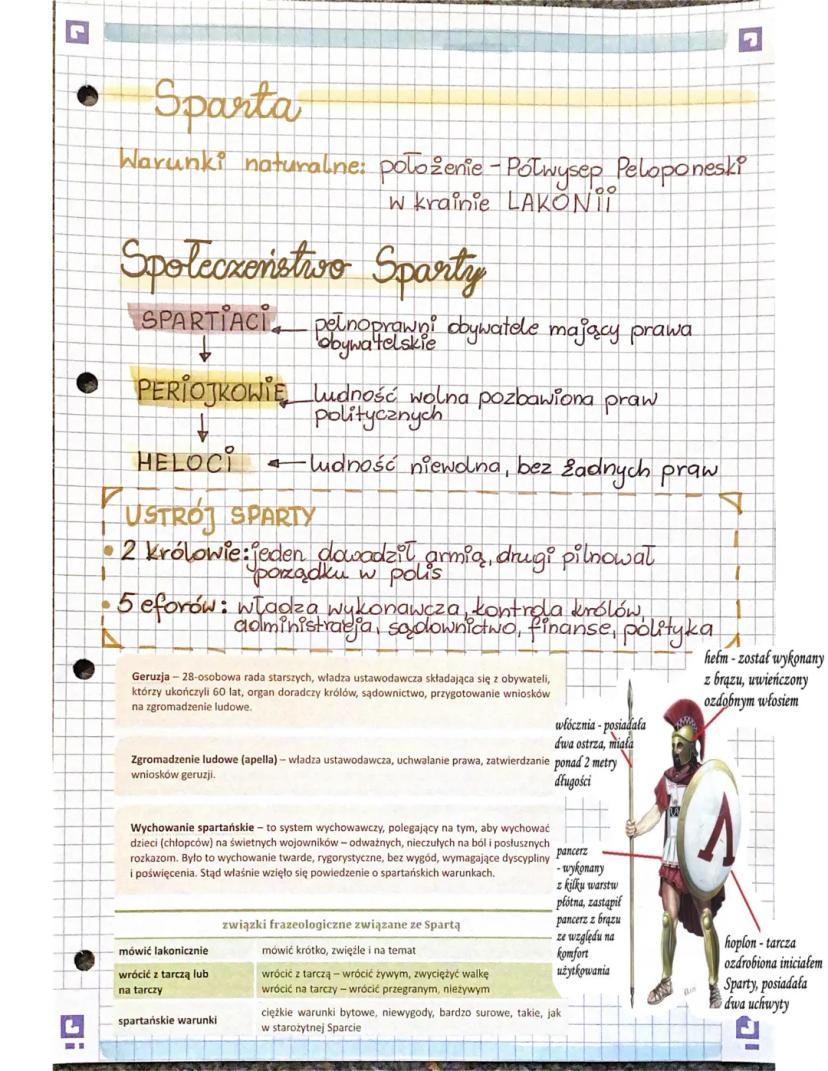 Sparta
Warunki naturalne: położenie - Półwysep Peloponeski
w krainie LAKONII
Społeczeństwo Sparty
SPARTIACI pełnoprawni obywatele mający prawa
obywatelskie
PERIOJKOWIE ludność wolna pozbawiona praw
politycznych
HELOCI ludność niewolna, bez żadnych praw
USTRÓJ SPARTY
• 2 królowie: jeden dowodził armią, drugi pilnował
porządku w polis
• 5 eforów: władza wykonawcza, kontrola królów,
administracja, sądownictwo, finanse, polityka
Geruzja – 28-osobowa rada starszych, władza ustawodawcza składająca się z obywateli,
którzy ukończyli 60 lat, organ doradczy królów, sądownictwo, przygotowanie wniosków
na zgromadzenie ludowe.
Zgromadzenie ludowe (apella) – władza ustawodawcza, uchwalanie prawa, zatwierdzanie
wniosków geruzji.
Wychowanie spartańskie – to system wychowawczy, polegający na tym, aby wychować
dzieci (chłopców) na świetnych wojowników – odważnych, nieczułych na ból i posłusznych
rozkazom. Było to wychowanie twarde, rygorystyczne, bez wygód, wymagające dyscypliny
i poświęcenia. Stąd właśnie wzięło się powiedzenie o spartańskich warunkach.
hełm - został wykonany
z brązu, uwieńczony
ozdobnym włosiem
włócznia - posiadała
dwa ostrza, miała
ponad 2 metry
długości
pancerz
- wykonany
z kilku warstw
płótna, zastąpił
pancerz z brązu
ze względu na
komfort
użytkowania
Λ
hoplon - tarcza
ozdrobiona iniciałem
Sparty, posiadała
dwa uchwyty
związki frazeologiczne związane ze Spartą
mówić lakonicznie mówić krótko, zwięźle i na temat
wrócić z tarczą lub wrócić z tarczą – wrócić żywym, zwyciężyć walkę
na tarczy wrócić na tarczy – wrócić przegranym, nieżywym
spartańskie warunki ciężkie warunki bytowe, niewygody, bardzo surowe, takie, jak
w starożytnej Sparcie